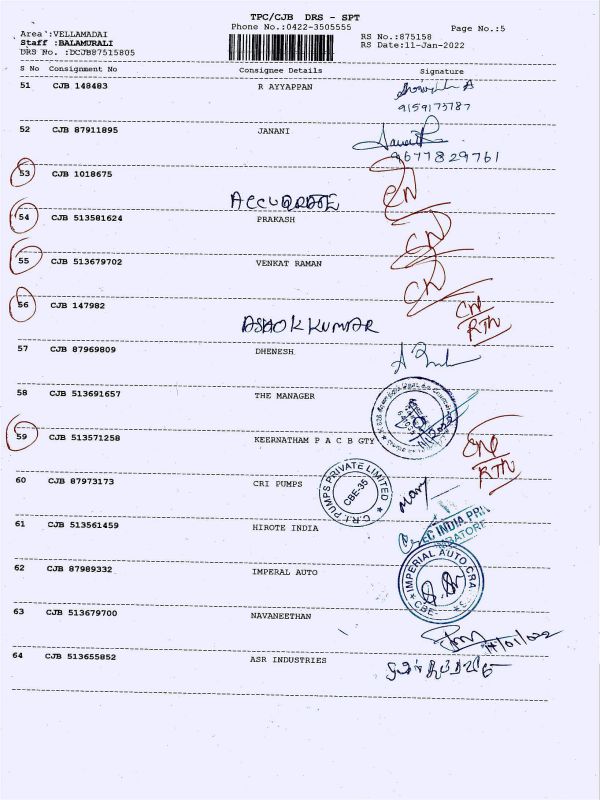 TPC/CJB DRS - SPT
Phone No.:0422-3505555
Page No.:5
Area :VELLAMADAI
Staff :BALAMURALI
DRS No. :DCJB87515805
RS No.:875158
RS Date:11-Jan-2022
S No Consignment No Consignee Details Signature
51 CJB 148483 R AYYAPPAN
9159173787
52 CJB 87911895 JANANI
9677829761
53 CJB 1018675
ACCURATE
54 CJB 513581624 PRAKASH
CN
55 CJB 513679702 VENKAT RAMAN
CN
56 CJB 147982
CN
RTN
ASHOK KUMAR
57 CJB 87969809 DHENESH
58 CJB 513691657 THE MANAGER
59 CJB 513571258 KEERNATHAM P A C B GTY
RTN
60 CJB 87973173 CRI PUMPS
C.R.I. PUMPS PRIVATE LIMITED
CBE-35
61 CJB 513561459 HIROTE INDIA
EC INDIA PRI
62 CJB 87989332 IMPERAL AUTO
IMPERIAL AUTO CRA
CBE-
63 CJB 513679700 NAVANEETHAN
64 CJB 513655852 ASR INDUSTRIES